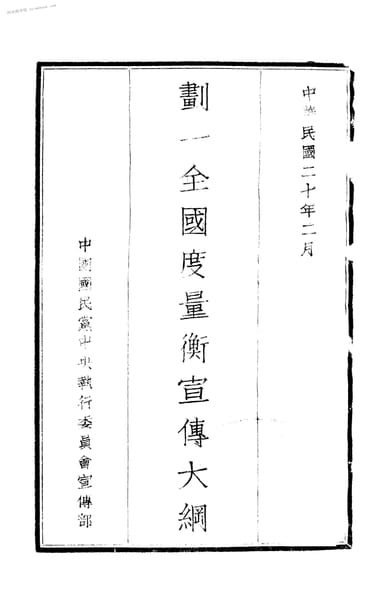 中華民國二十年二月
劃一全國度量衡宣傳大綱
中國國民黨中央執行委員會宣傳部